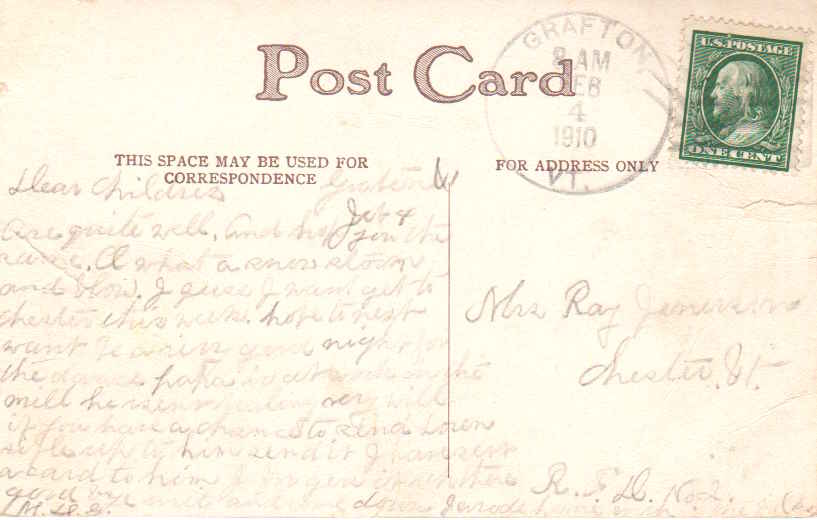 GRAFTON,
8 AM
FEB
4
1910
VT.
U.S. POSTAGE
ONE CENT
Post Card
THIS SPACE MAY BE USED FOR
CORRESPONDENCE
FOR ADDRESS ONLY
Dear Children Grafton
Feb 4
are quite well, and hope you the
same. O what a snow storm
and blow. I guess I wont get to
Chester this week. hope to next
want good night for
the dance papa is at work in the
mill he along very well
if you have a chance to send Loren
rifle up to him send it I have sent
a card to him
good bye and down
Mrs Ray
Chester, Vt.
R. F. D. No 2.